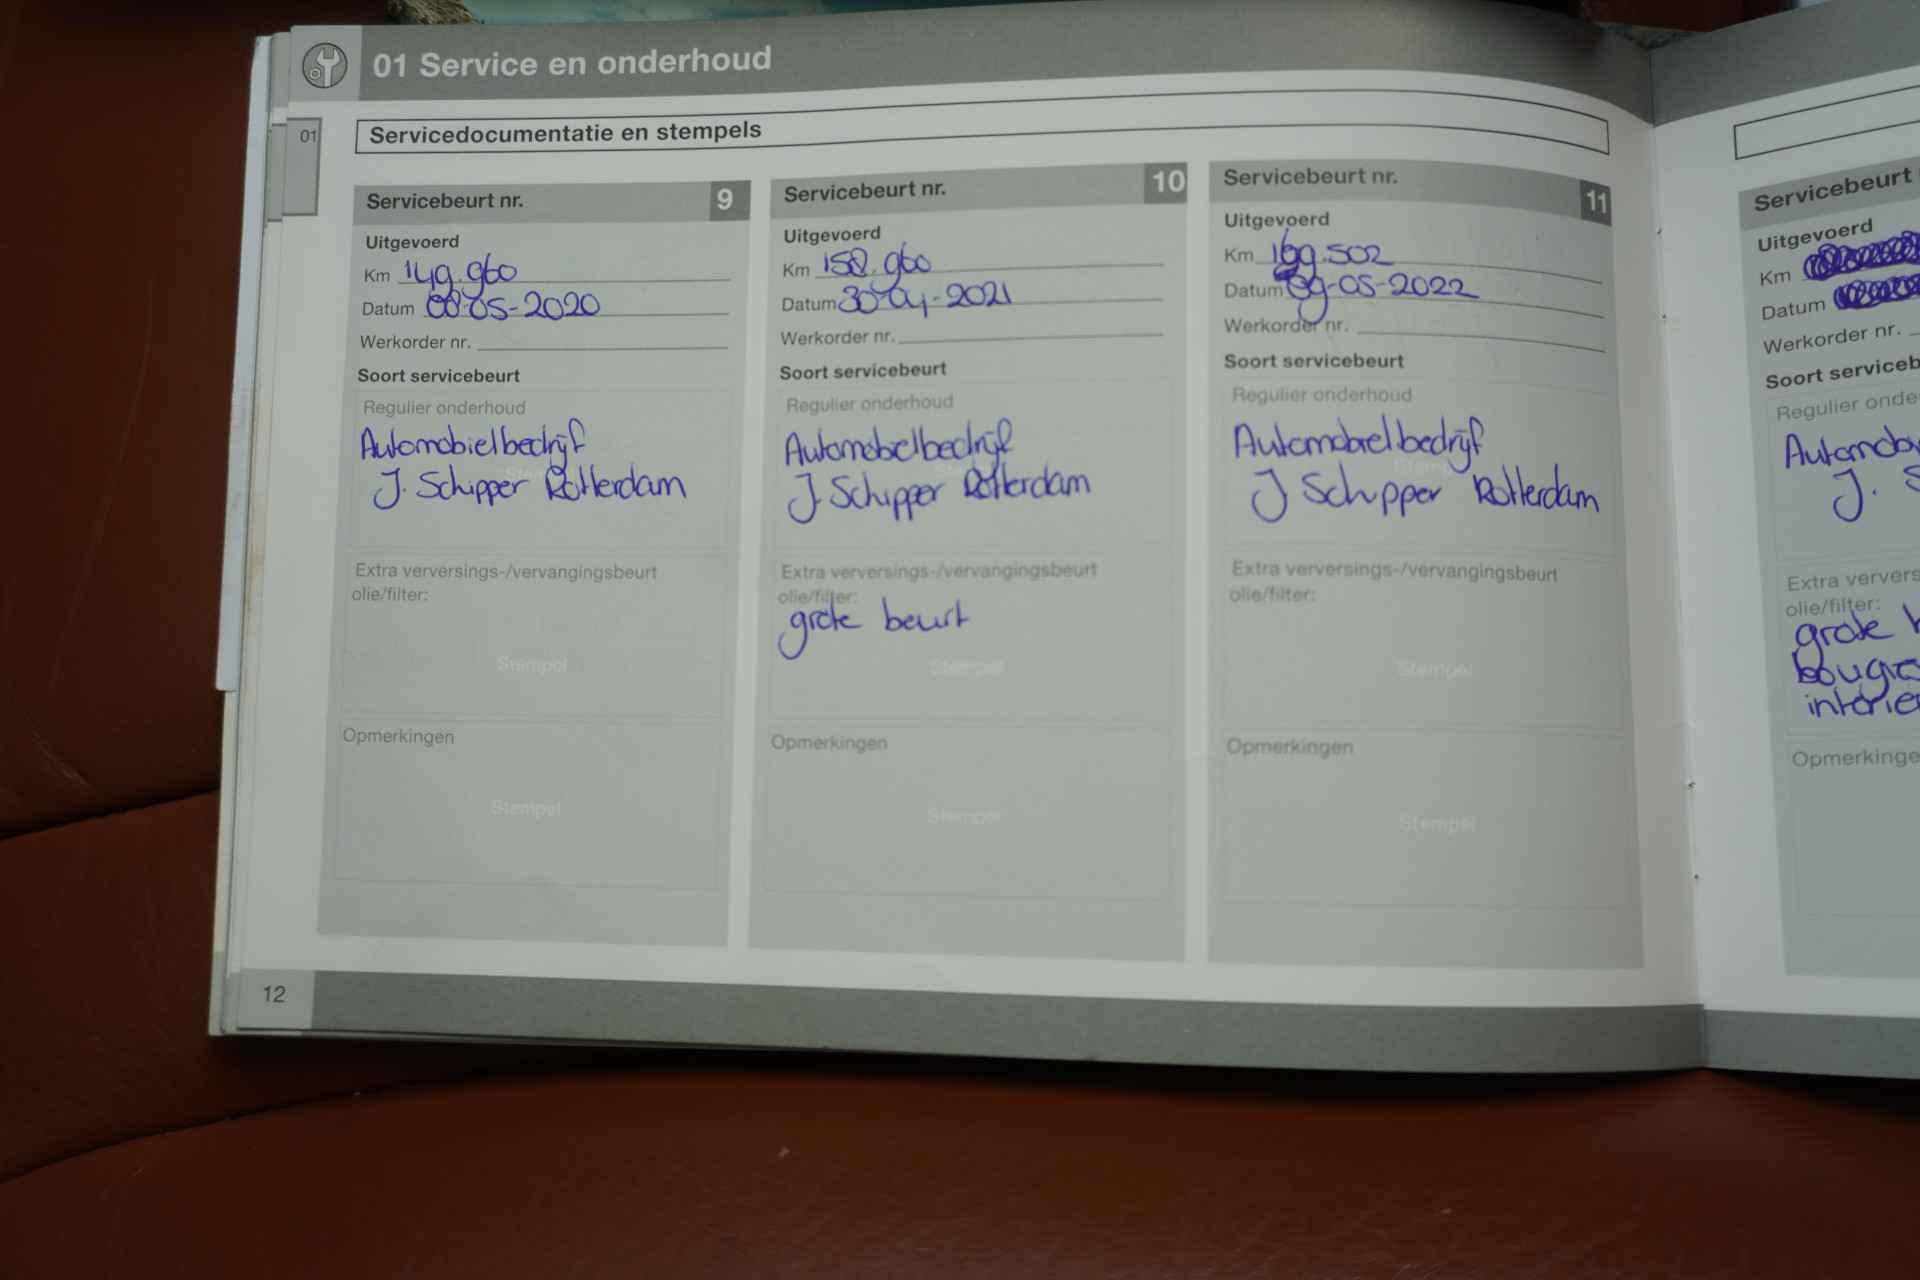 01 Service en onderhoud
01
Servicedocumentatie en stempels
Servicebeurt nr. 9
Uitgevoerd
Km 149.960
Datum 08-05-2020
Werkorder nr.
Soort servicebeurt
Regulier onderhoud
Automobielbedrijf
J. Schipper Rotterdam
Extra verversings-/vervangingsbeurt
olie/filter:
Stempel
Opmerkingen
Stempel
12
Servicebeurt nr. 10
Uitgevoerd
Km 158.960
Datum 30-04-2021
Werkorder nr.
Soort servicebeurt
Regulier onderhoud
Automobielbedrijf
J Schipper Rotterdam
Extra verversings-/vervangingsbeurt
olie/filter:
grote beurt
Stempel
Opmerkingen
Stempel
Servicebeurt nr. 11
Uitgevoerd
Km 169.502
Datum 09-05-2022
Werkorder nr.
Soort servicebeurt
Regulier onderhoud
Automobielbedrijf
J Schipper Rotterdam
Extra verversings-/vervangingsbeurt
olie/filter:
Stempel
Opmerkingen
Stempel
Servicebeurt
Uitgevoerd
Km
Datum
Werkorder nr.
Soort serviceb
Regulier onde
Automob
J. S
Extra ververs
olie/filter:
grote b
bougi
interie
Opmerkinge